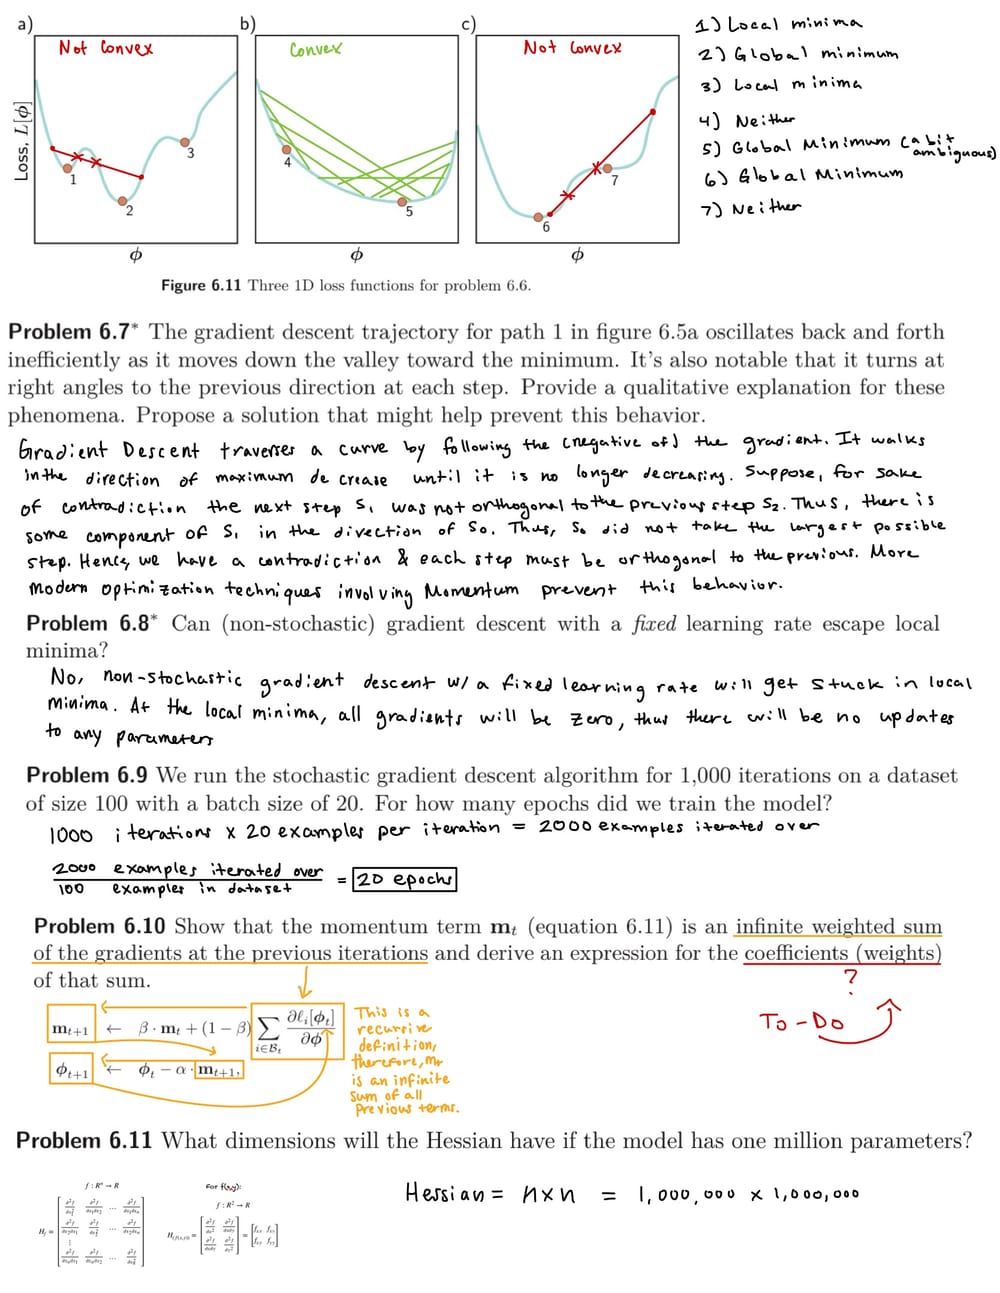 a)
b)
c)
Not Convex
Convex
Not Convex
Loss, L[ϕ]
1
2
3
4
5
6
7
ϕ
ϕ
ϕ
1) Local minima
2) Global minimum
3) Local minima
4) Neither
5) Global Minimum (a bit ambiguous)
6) Global Minimum
7) Neither
Figure 6.11 Three 1D loss functions for problem 6.6.
Problem 6.7* The gradient descent trajectory for path 1 in figure 6.5a oscillates back and forth
inefficiently as it moves down the valley toward the minimum. It's also notable that it turns at
right angles to the previous direction at each step. Provide a qualitative explanation for these
phenomena. Propose a solution that might help prevent this behavior.
Gradient Descent traverses a curve by following the (negative of) the gradient. It walks
in the direction of maximum decrease until it is no longer decreasing. Suppose, for sake
of contradiction the next step S₁ was not orthogonal to the previous step S₂. Thus, there is
some component of S₁ in the direction of S₀. Thus, S₀ did not take the largest possible
step. Hence, we have a contradiction & each step must be orthogonal to the previous. More
modern optimization techniques involving Momentum prevent this behavior.
Problem 6.8* Can (non-stochastic) gradient descent with a fixed learning rate escape local
minima?
No, non-stochastic gradient descent w/ a fixed learning rate will get stuck in local
minima. At the local minima, all gradients will be zero, thus there will be no updates
to any parameters
Problem 6.9 We run the stochastic gradient descent algorithm for 1,000 iterations on a dataset
of size 100 with a batch size of 20. For how many epochs did we train the model?
1000 iterations x 20 examples per iteration = 2000 examples iterated over
2000 examples iterated over
100 examples in dataset
= 20 epochs
Problem 6.10 Show that the momentum term mₜ (equation 6.11) is an infinite weighted sum
of the gradients at the previous iterations and derive an expression for the coefficients (weights)
of that sum.
?
To-Do
mₜ₊₁ ← β · mₜ + (1 − β) ∑_{i∈Bₜ} ∂ℓᵢ[ϕₜ]/∂ϕ
ϕₜ₊₁ ← ϕₜ − α · mₜ₊₁,
This is a
recursive
definition,
therefore, mₜ
is an infinite
sum of all
previous terms.
Problem 6.11 What dimensions will the Hessian have if the model has one million parameters?
f : Rⁿ → R
For f(x,y):
f : R² → R
Hessian = n x n = 1,000,000 x 1,000,000